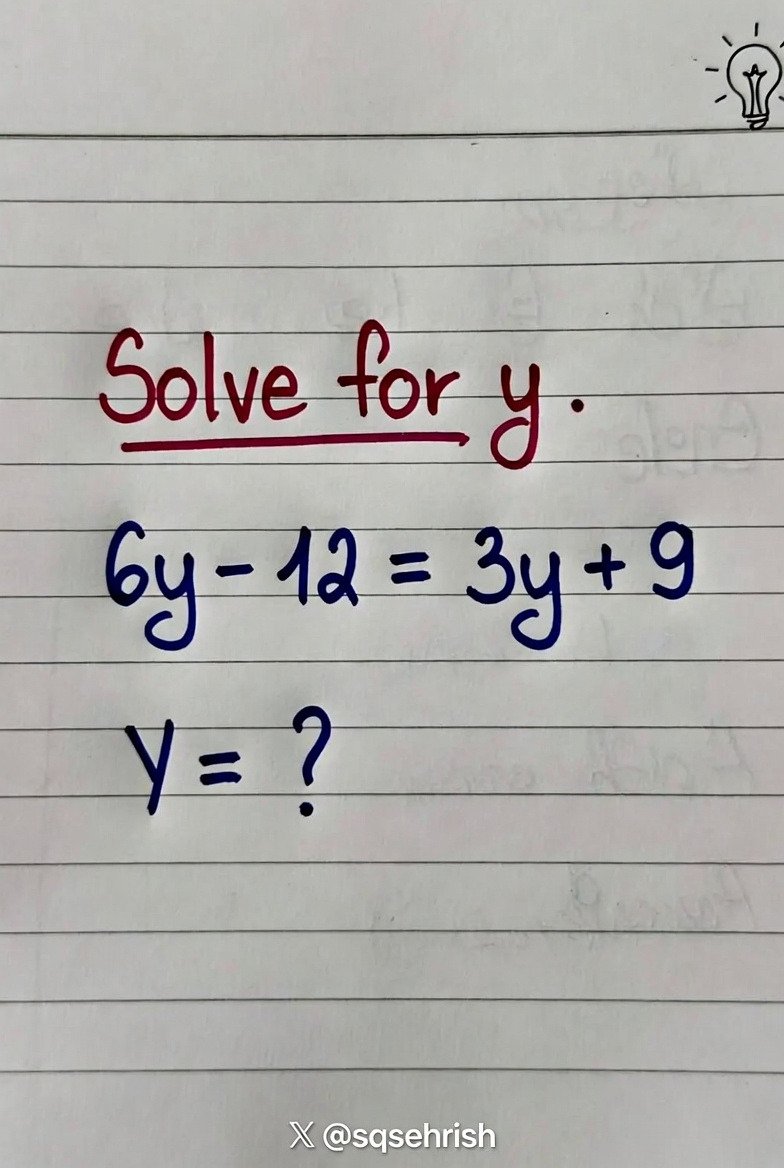 Solve for y.
6y - 12 = 3y + 9
y = ?
X @sqsehrish